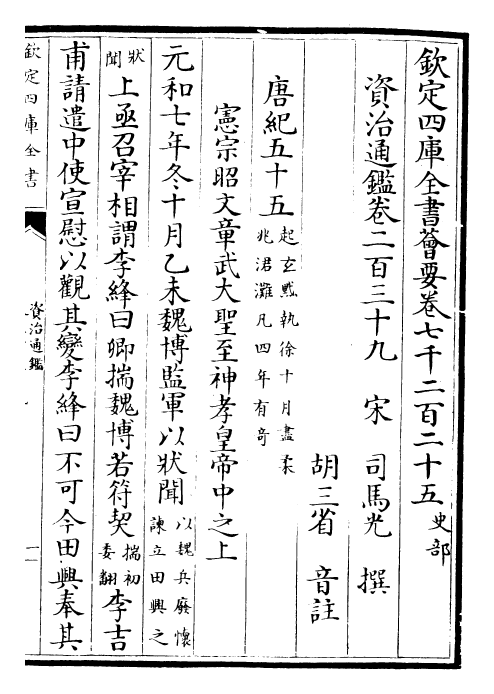 欽定四庫全書薈要卷七千二百二十五 史部
資治通鑑卷二百三十九
宋 司馬光 撰
胡三省 音註
唐紀五十五 起玄黓執徐十月盡柔兆涒灘凡四年有奇
憲宗昭文章武大聖至神孝皇帝中之上
元和七年冬十月乙未魏博監軍以狀聞 以魏兵廢懷諫立田興之
狀聞 上亟召宰相謂李絳曰卿揣魏博若符契 揣初委翻 李吉
甫請遣中使宣慰以觀其變李絳曰不可今田興奉其
欽定四庫全書
資治通鑑
一